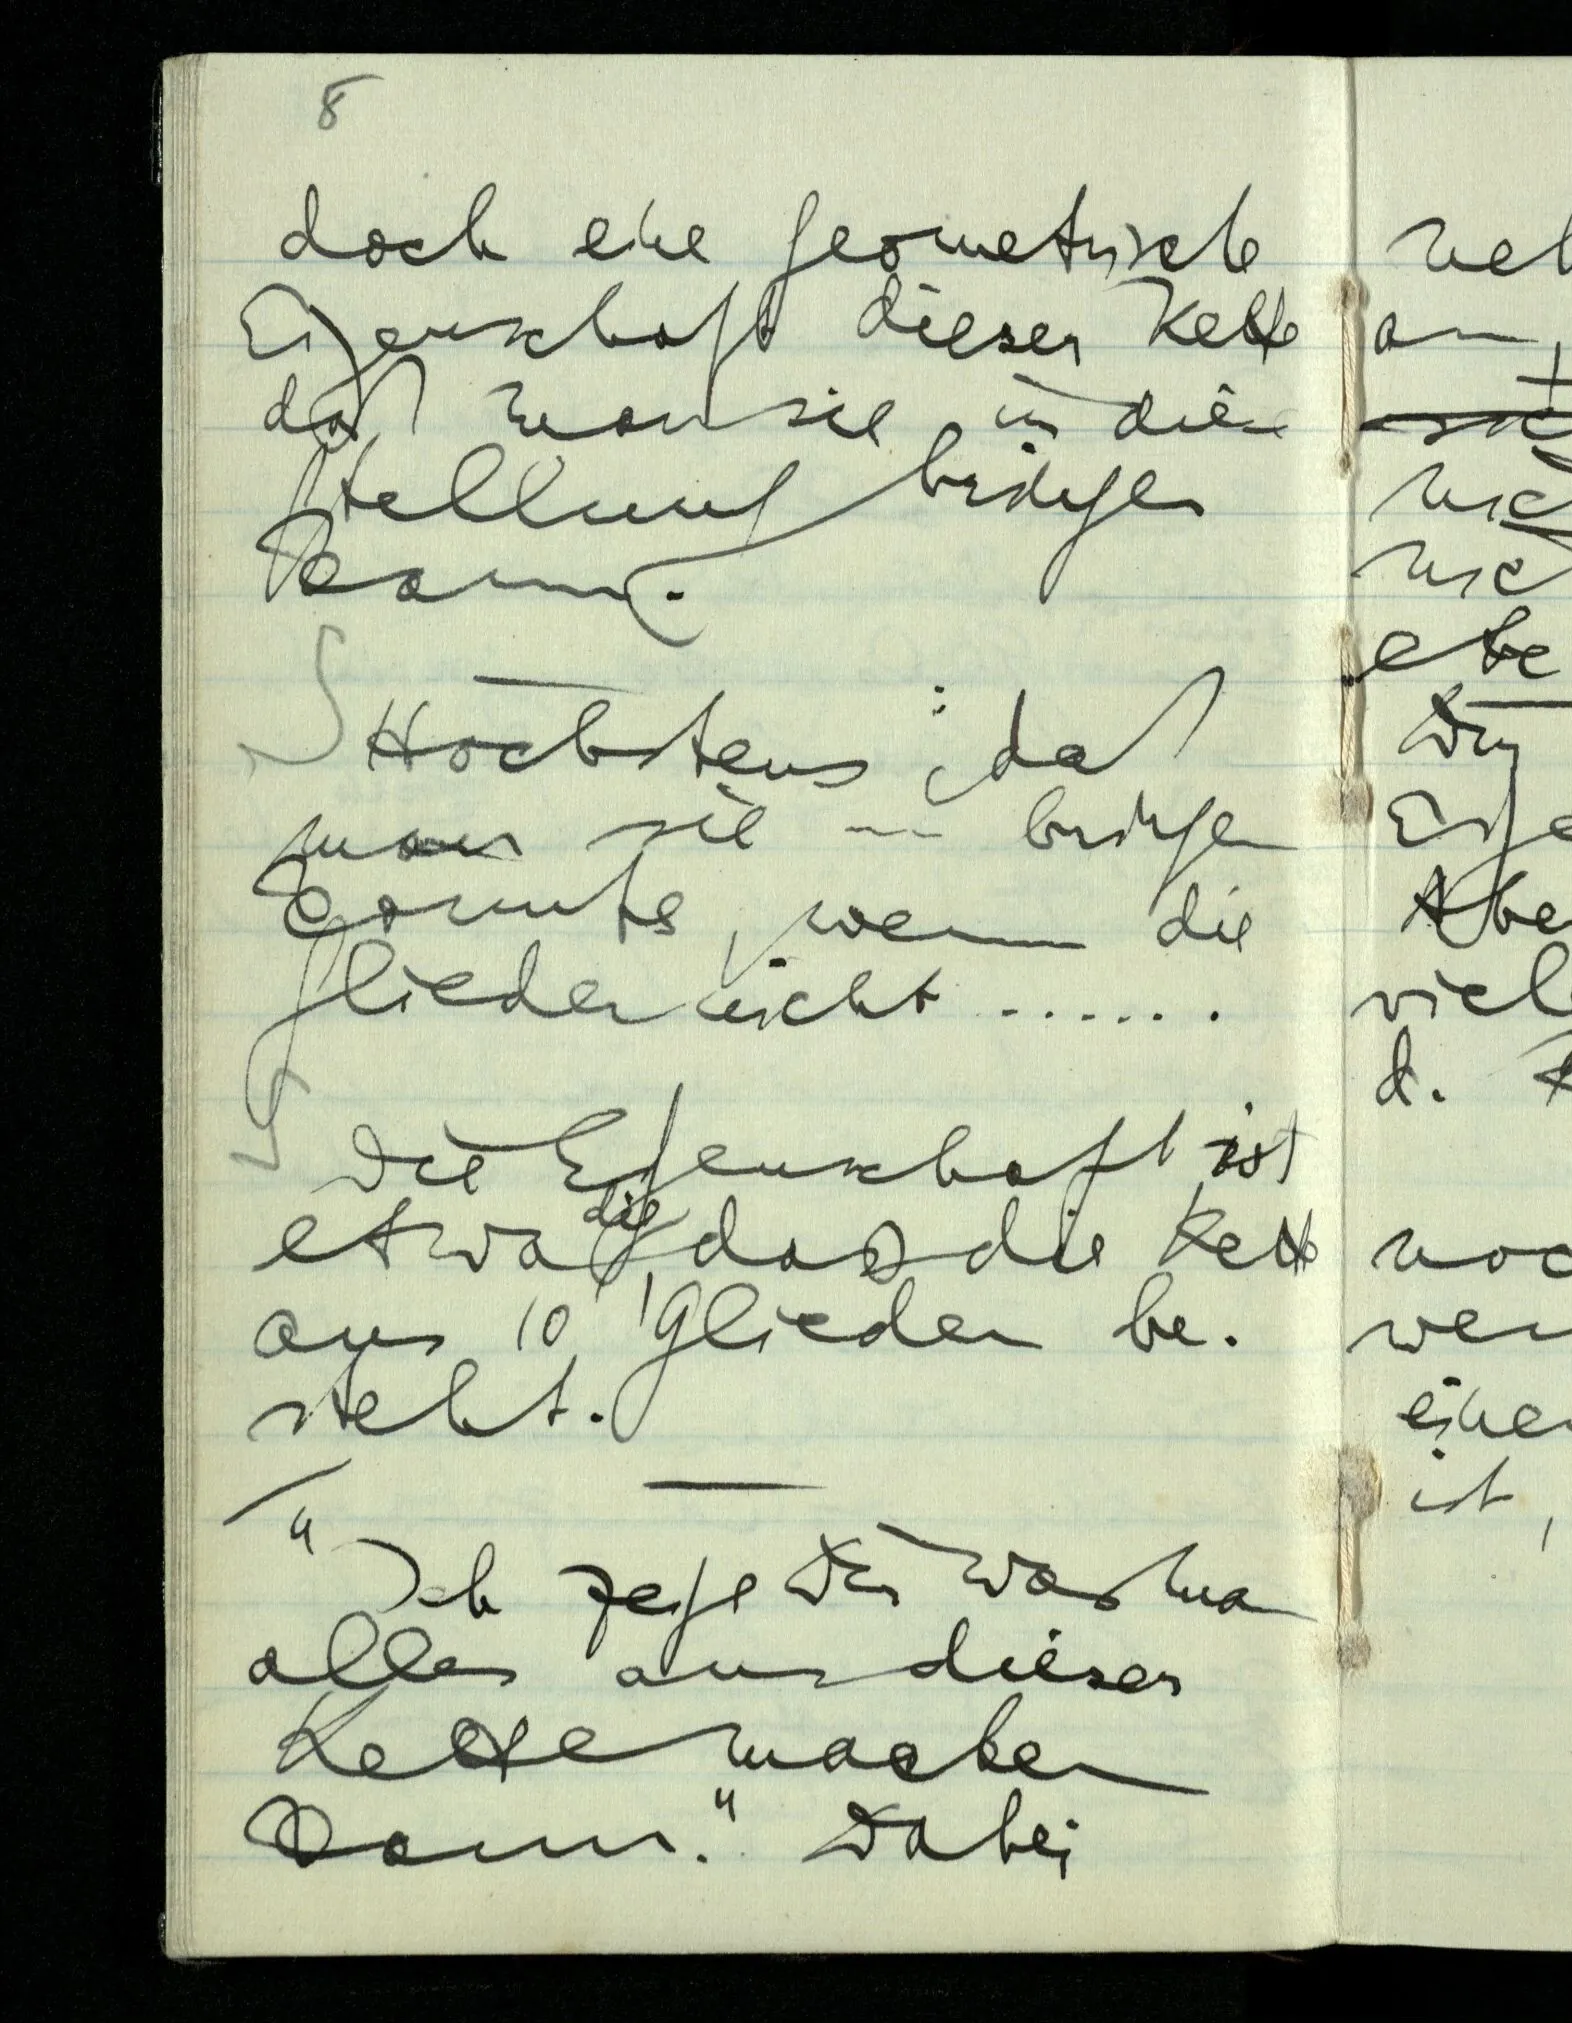 8
doch eine geometrische
Eigenschaft dieser Kette
daß man sie in diese
Stellung bringen
kann.
Höchstens: daß
man sie --- bringen
könnte, wenn die
Glieder nicht ......
Die Eigenschaft ist
etwa die, daß die Kette
aus 10 Glieder be-
steht.
"Ich zeige Dir was man
alles aus dieser
Kette machen
kann." Dabei